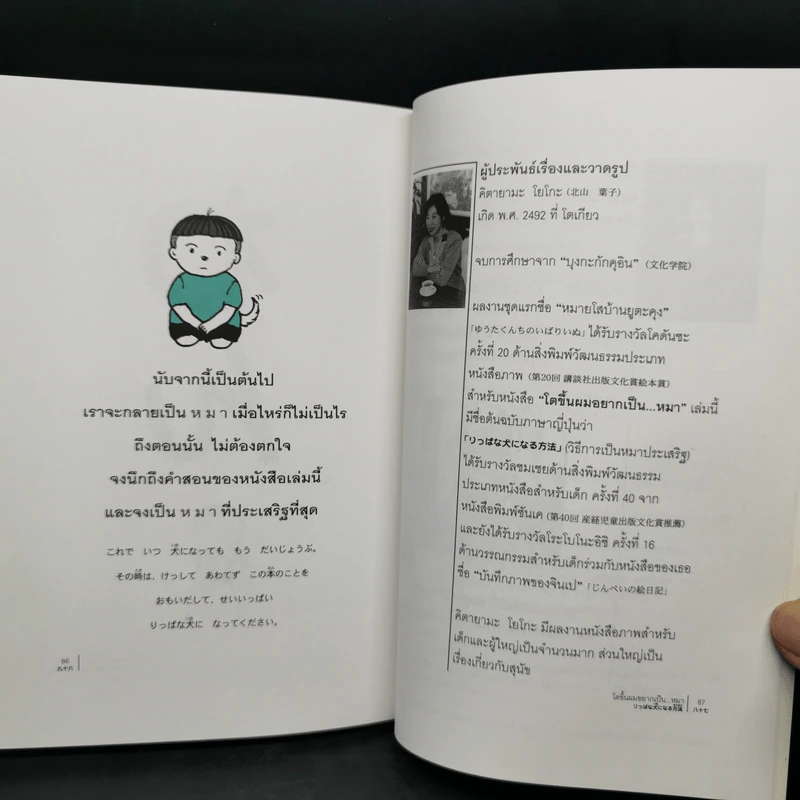 นับจากนี้เป็นต้นไป
เราจะกลายเป็น ห ม า เมื่อไหร่ก็ไม่เป็นไร
ถึงตอนนั้น ไม่ต้องตกใจ
จงนึกถึงคำสอนของหนังสือเล่มนี้
และจงเป็น ห ม า ที่ประเสริฐที่สุด
これで いつ 犬になっても もう だいじょうぶ。
その時は、けっして あわてず この本のことを
おもいだして、せいいっぱい
りっぱな犬に なってください。
86
九十六
ผู้ประพันธ์เรื่องและวาดรูป
คิตายามะ โยโกะ (北山 葉子)
เกิด พ.ศ. 2492 ที่ โตเกียว
จบการศึกษาจาก “บุงกะกักคุอิน” (文化学院)
ผลงานชุดแรกชื่อ “หมายโสบ้านยูตะคุง”
「ゆうたくんちのいばりいぬ」 ได้รับรางวัลโคดันชะ
ครั้งที่ 20 ด้านสิ่งพิมพ์วัฒนธรรมประเภท
หนังสือภาพ (第20回 講談社出版文化賞絵本賞)
สำหรับหนังสือ “โตขึ้นผมอยากเป็น...หมา” เล่มนี้
มีชื่อต้นฉบับภาษาญี่ปุ่นว่า
「りっぱな犬になる方法」 (วิธีการเป็นหมาประเสริฐ)
ได้รับรางวัลชมเชยด้านสิ่งพิมพ์วัฒนธรรม
ประเภทหนังสือสำหรับเด็ก ครั้งที่ 40 จาก
หนังสือพิมพ์ซันเค (第40回 産経児童出版文化賞推薦)
และยังได้รับรางวัลโระโบโนะอิชิ ครั้งที่ 16
ด้านวรรณกรรมสำหรับเด็กร่วมกับหนังสือของเธอ
ชื่อ “บันทึกภาพของจินเป” 「じんぺいの絵日記」
คิตายามะ โยโกะ มีผลงานหนังสือภาพสำหรับ
เด็กและผู้ใหญ่เป็นจำนวนมาก ส่วนใหญ่เป็น
เรื่องเกี่ยวกับสุนัข
โตขึ้นผมอยากเป็น...หมา 87
りっぱな犬になる方法 八十七